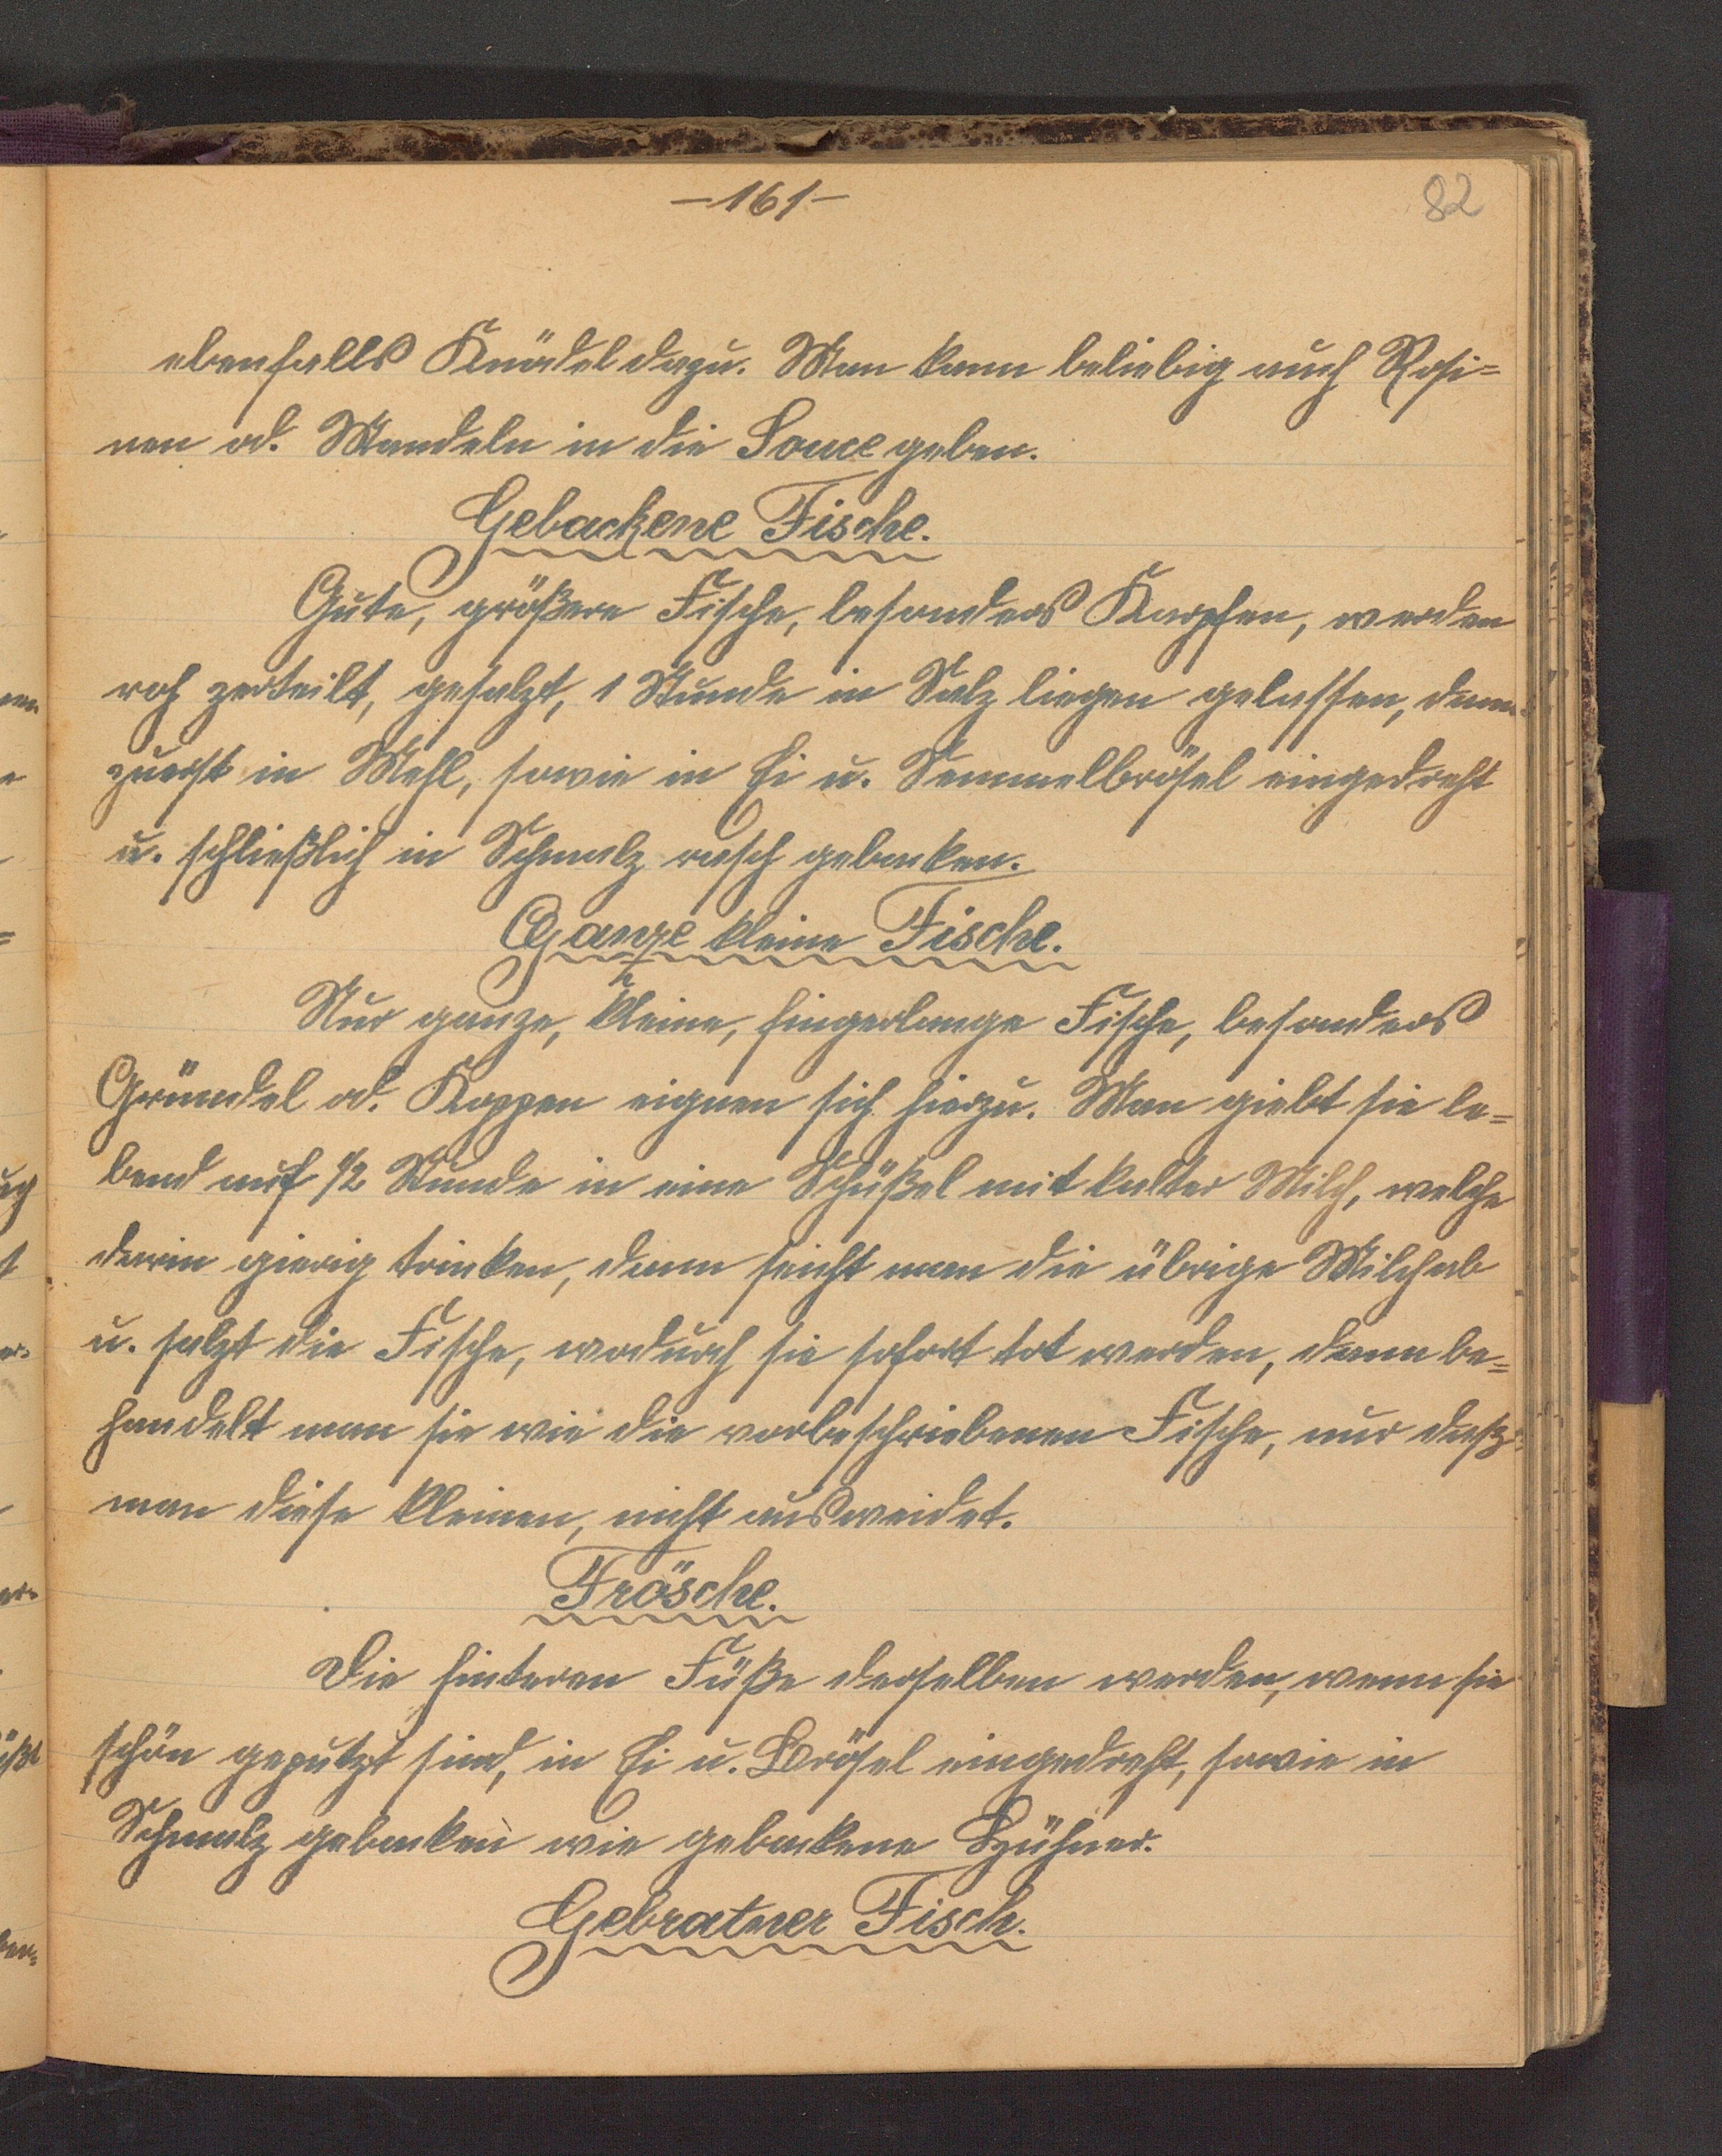 -161-
82
ebenfalls Knödel dazu. Man kann beliebig auch Rosi=
nen od. Mandeln in die Souce geben.
Gebackene Fische.
Gute, größere Fische, besonders Karpfen, werden
roh zerteilt, gesalzt, 1 Stunde in Salz liegen gelassen, dann
zuerst in Mehl, sowie in Ei u. Semmelbrösel eingedreht
u. schließlich in Schmalz rasch gebacken.
Ganze kleine Fische.
Nur ganze, kleine, fingerlange Fische, besonders
Gründel od. Koppen eignen sich hierzu. Man giebt sie le=
bend auf 1/2 Stunde in eine Schüßel mit kalter Milch, welche
darin gierig trinken, dann seicht man die übrige Milch ab
u. salzt die Fische, wodurch sie sofort tot werden, dann be=
handelt man sie wie die vorbeschriebenen Fische, nur daß
man diese kleinen, nicht ausweidet.
Frösche.
Die hinteren Füße derselben werden, wenn sie
schön geputzt sind, in Ei u. Brösel eingedreht, sowie in
Schmalz gebacken wie gebackene Hühner.
Gebratner Fisch.